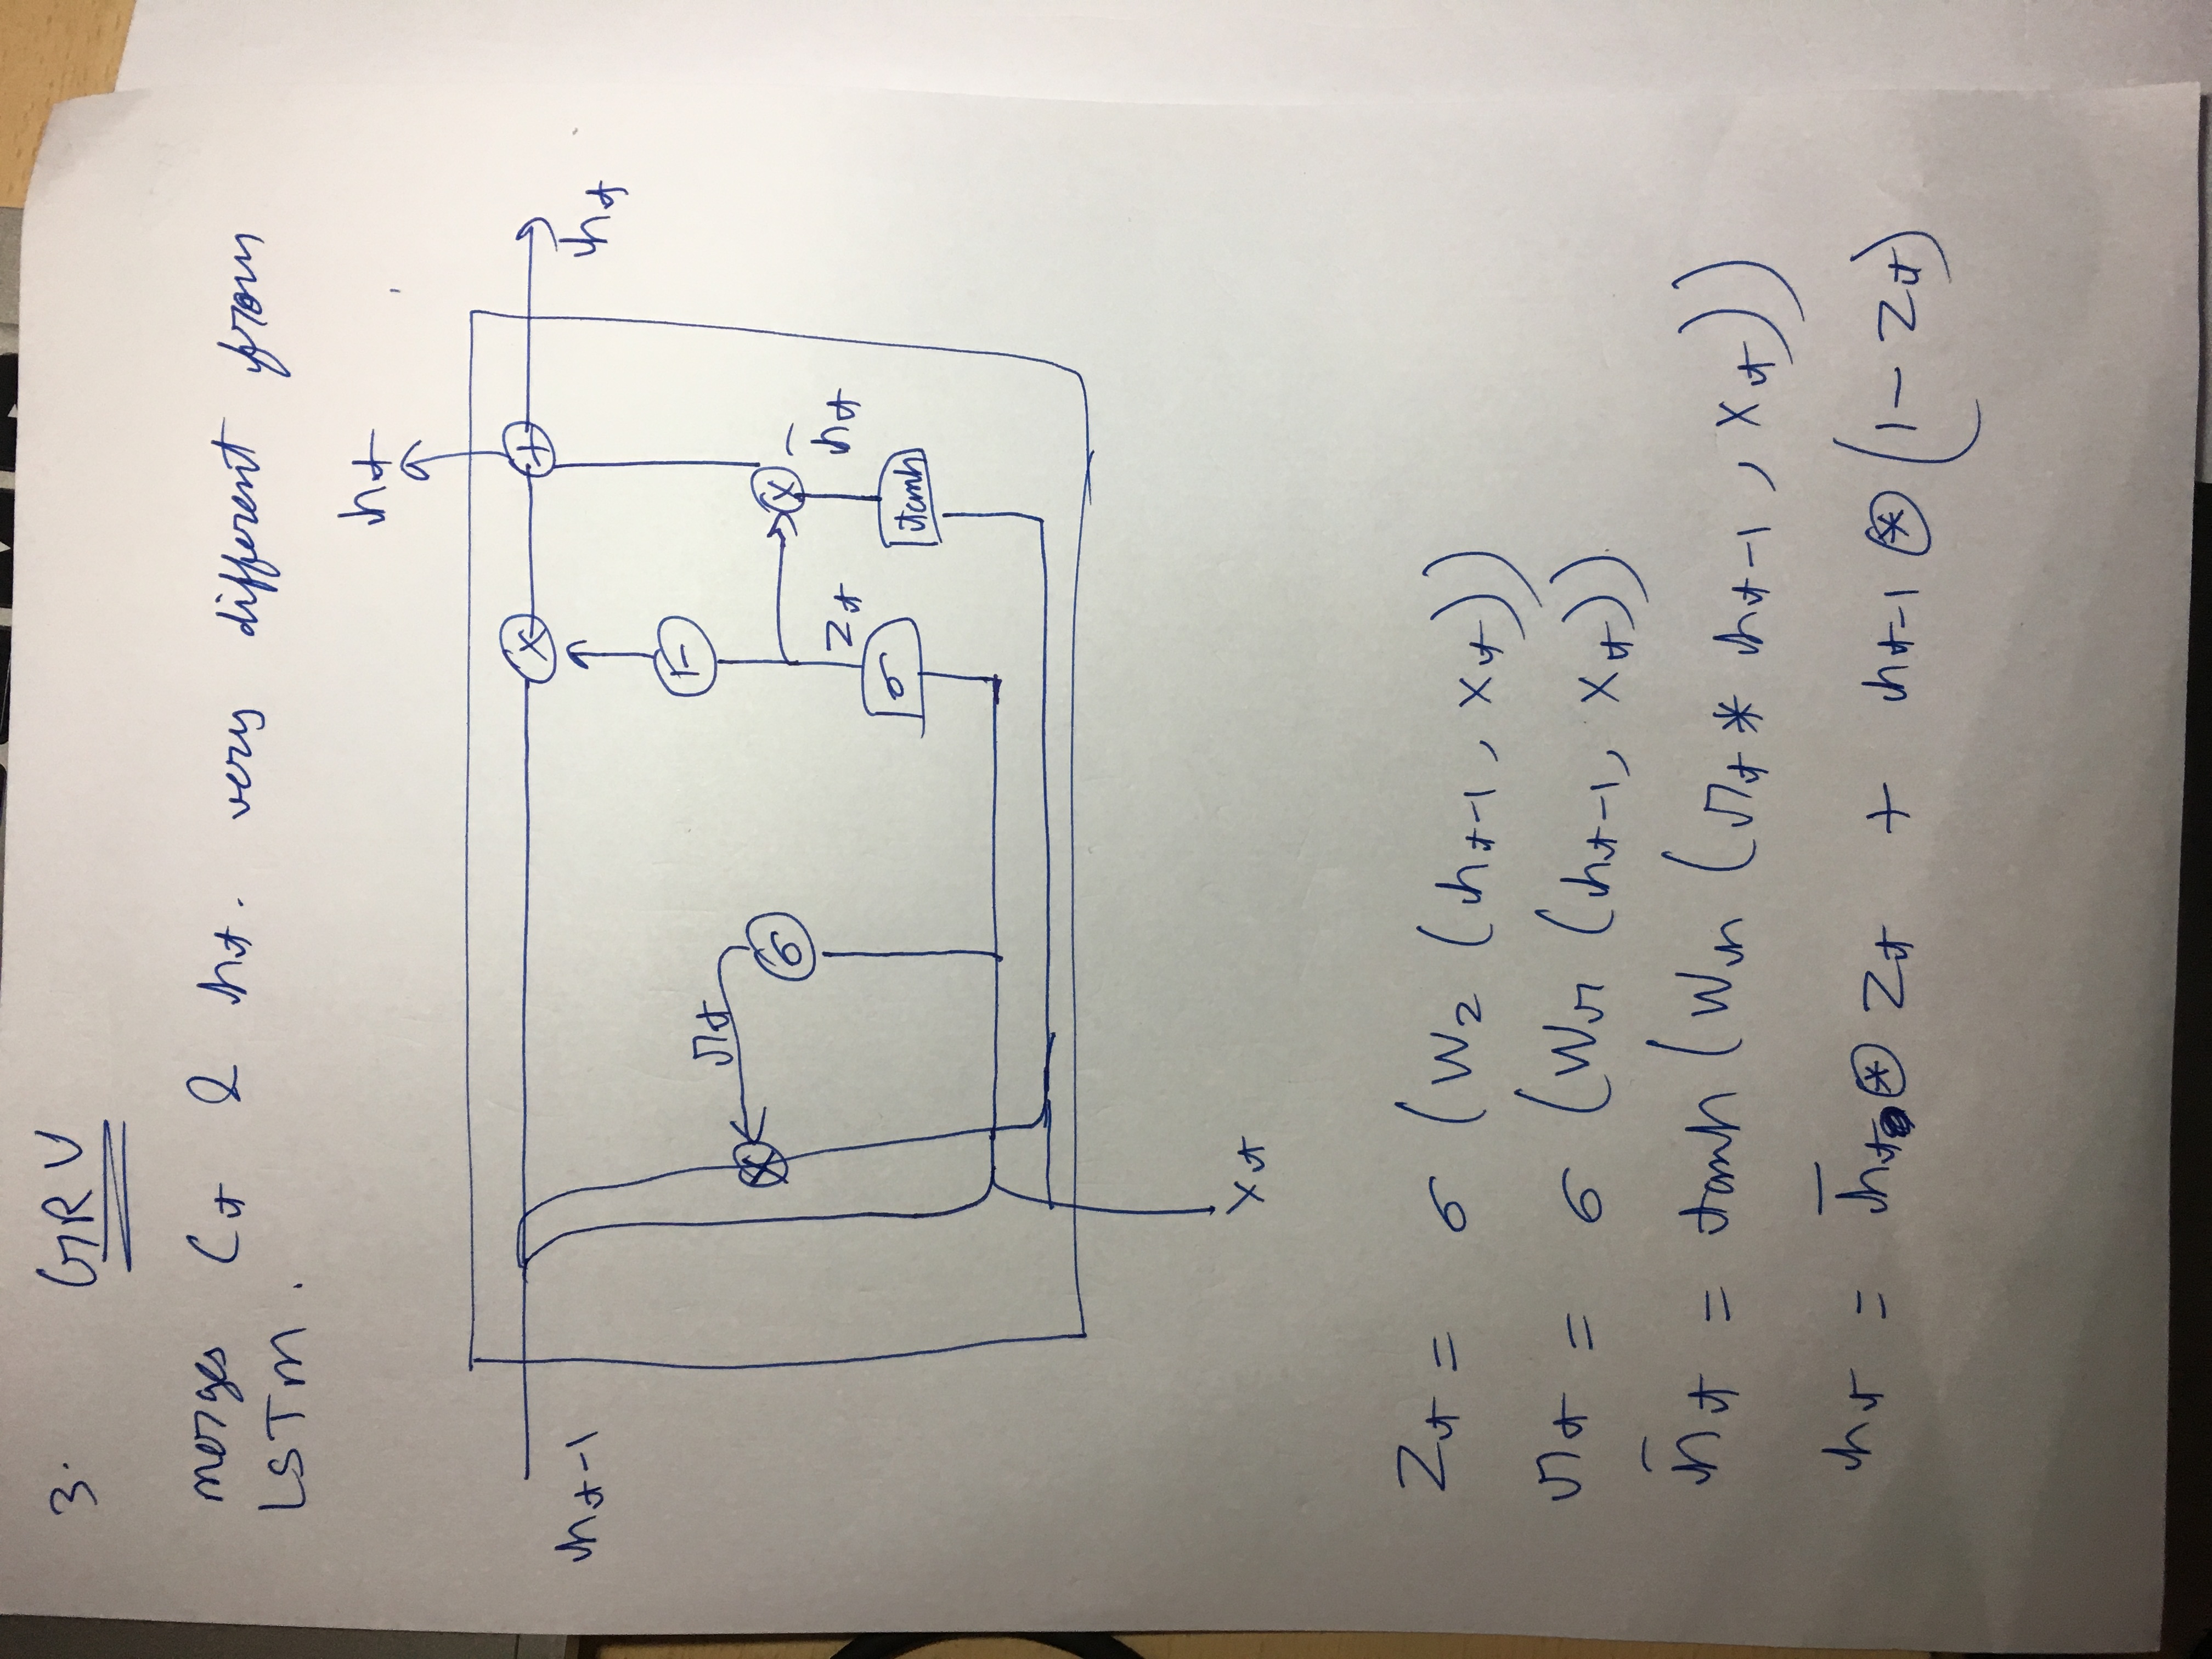 3. GRU
merges Ct & ht. very different from
LSTM.
ht
x +
ht-1
ht
1-
rt
x σ
x
zt h̄t
σ tanh
xt
zt = σ (Wz (ht-1, xt))
rt = σ (Wr (ht-1, xt)).
h̄t = tanh (Wh (rt * ht-1, xt))
ht = h̄t ⊛ zt + ht-1 ⊛ (1 - zt)